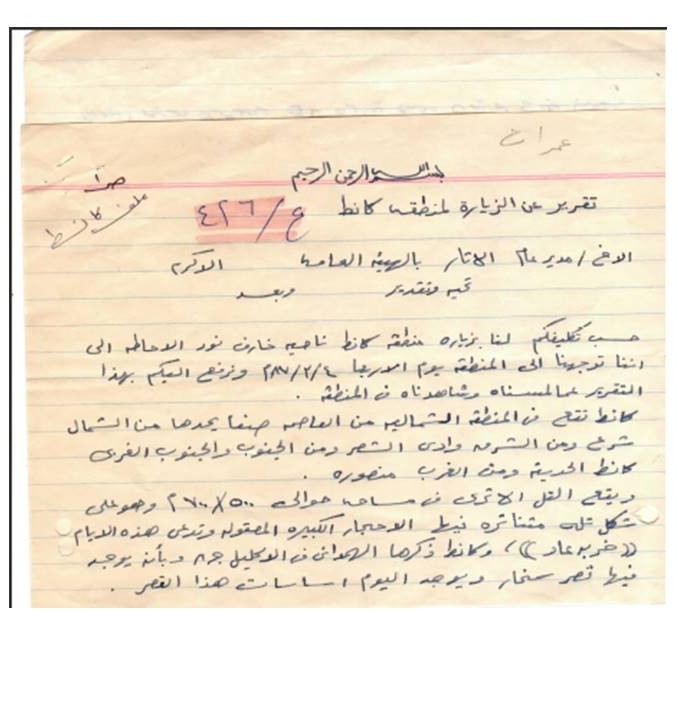 عمران
بسم الله الرحمن الرحيم
ملف كانط
تقرير عن الزيارة لمنطقه كانط ع/٤٢٦
الاخ/مدير عام الاثار بالهيئه العامه الاكرم
تحيه وتقدير وبعد
حسب تكليفكم لنا بزياره منطقه كانط ناحيه خارف نود الاحاطه الى
اننا توجهنا الى المنطقه يوم الاربعا ٨٧/٢/٤م ونرفع اليكم بهذا
التقرير عما لمسناه وشاهدناه في المنطقه .
كانط تقع في المنطقه الشماليه من العاصمه صنعا يحدها من الشمال
شرع ومن الشرق وادي الشعر ومن الجنوب والجنوب الغربى
كانط الحديثه ومن الغرب منصوره .
ويقع التل الاثرى في مساحه حوالى ٥٠٠/٧٠٠م وهو على
شكل تله متناثره فيها الاحجار الكبيره المصقوله وتدعى هذه الايام
((خربه عاد))، وكانط ذكرها الهمدانى في الاكليل ج٨ وبأنه يوجد
فيها قصر سنحار ويوجد اليوم اساسات هذا القصر .